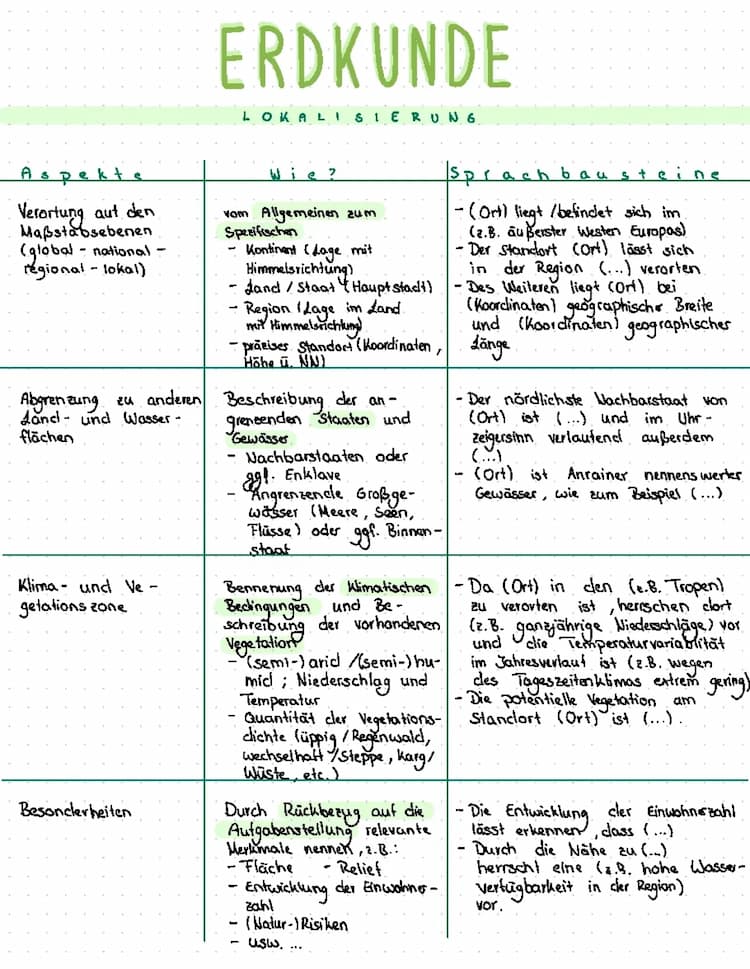 ERDKUNDE
LOKALISIERUNG
Aspekte
Wie?
Sprachbausteine
Verortung auf den
Maßstabsebenen
(global - national -
regional - lokal)
vom Allgemeinen zum
Spezifischen
- Kontinent (Lage mit
Himmelsrichtung)
- Land / Staat (Hauptstadt)
- Region (Lage im Land
mit Himmelsrichtung)
- präzises Standort (Koordinaten,
Höhe ü. NN)
- (Ort) liegt / befindet sich im
(z.B. äußerster Westen Europas)
- Der Standort (Ort) lässt sich
in der Region (...) verorten
- Des Weiteren liegt (Ort) bei
(Koordinaten) geographische Breite
und (Koordinaten) geographischer
Länge
Abgrenzung zu anderen
Land- und Wasser-
flächen
Beschreibung der an-
grenzenden Staaten und
Gewässer
- Nachbarstaaten oder
ggf. Enklave
- Angrenzende Großge-
wässer (Meere, Seen,
Flüsse) oder ggf. Binnen-
staat
- Der nördlichste Nachbarstaat von
(Ort) ist (...) und im Uhr-
zeigersinn verlaufend außerdem
(...)
- (Ort) ist Anrainer nennenswerter
Gewässer, wie zum Beispiel (...)
Klima- und Ve-
getationszone
Bennenung der klimatischen
Bedingungen und Be-
schreibung der vorhandenen
Vegetation
- (semi-) arid / (semi-) hu-
mid ; Niederschlag und
Temperatur
- Quantität der Vegetations-
dichte (üppig / Regenwald,
wechselhaft / Steppe, karg/
Wüste, etc.)
- Da (Ort) in den (z.B. Tropen)
zu verorten ist, herrschen dort
(z.B. ganzjährige Niederschläge) vor
und die Temperaturvariabilität
im Jahresverlauf ist (z.B. wegen
des Tageszeitenklimas extrem gering)
- Die potentielle Vegetation am
Standort (Ort) ist (...).
Besonderheiten
Durch Rückbezug auf die
Aufgabenstellung relevante
Merkmale nennen, z.B.:
- Fläche - Relief
- Entwicklung der Einwohner-
zahl
- (Natur-) Risiken
- usw. ...
- Die Entwicklung der Einwohnerzahl
lässt erkennen, dass (...)
- Durch die Nähe zu (...)
herrscht eine (z.B. hohe Wasser-
verfügbarkeit in der Region)
vor.